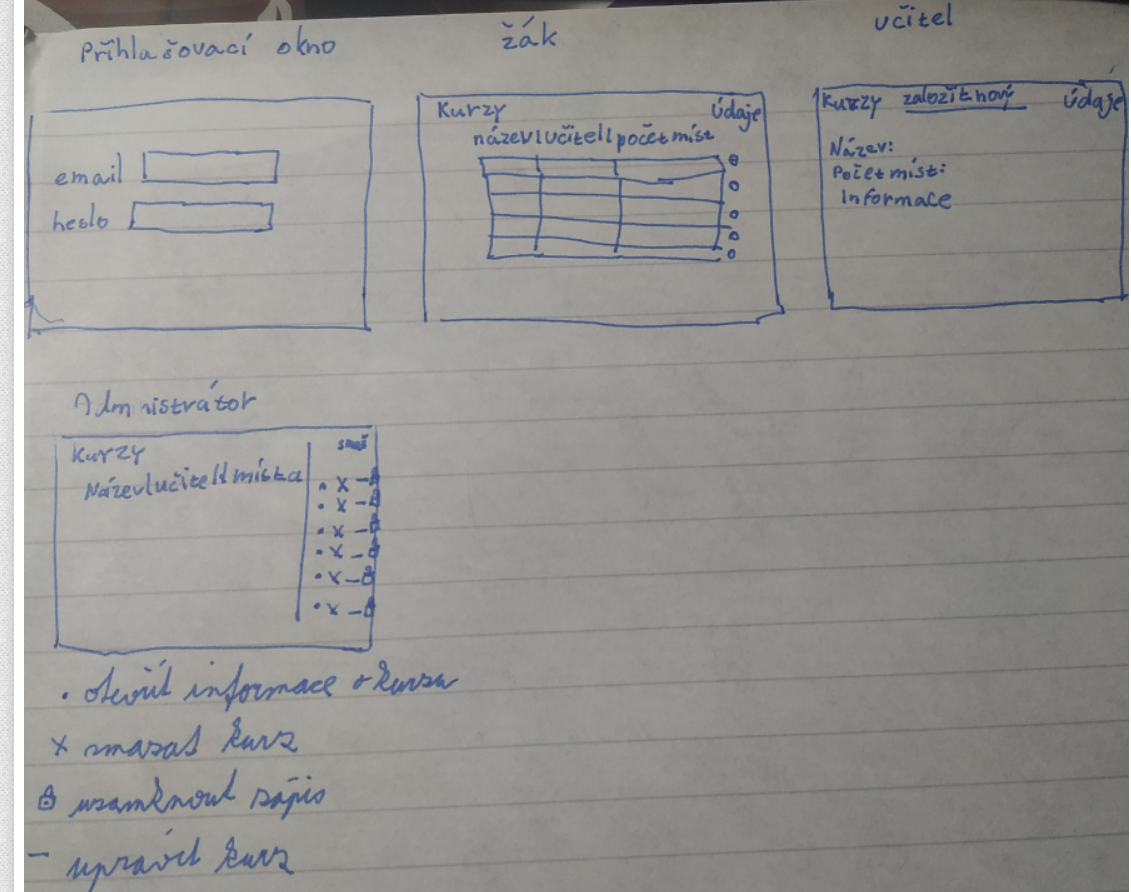 Přihlašovací okno
email
heslo
žák
Kurzy údaje
název|učitel|počet míst
učitel
Kurzy založit nový údaje
Název:
Počet míst:
Informace
Administrátor
Kurzy
Název|učitel|místa
x -
x -
x -
x -
x -
x -
• otevřít informace o kurzu
x smazat kurz
uzamknout zápis
- upravit kurz